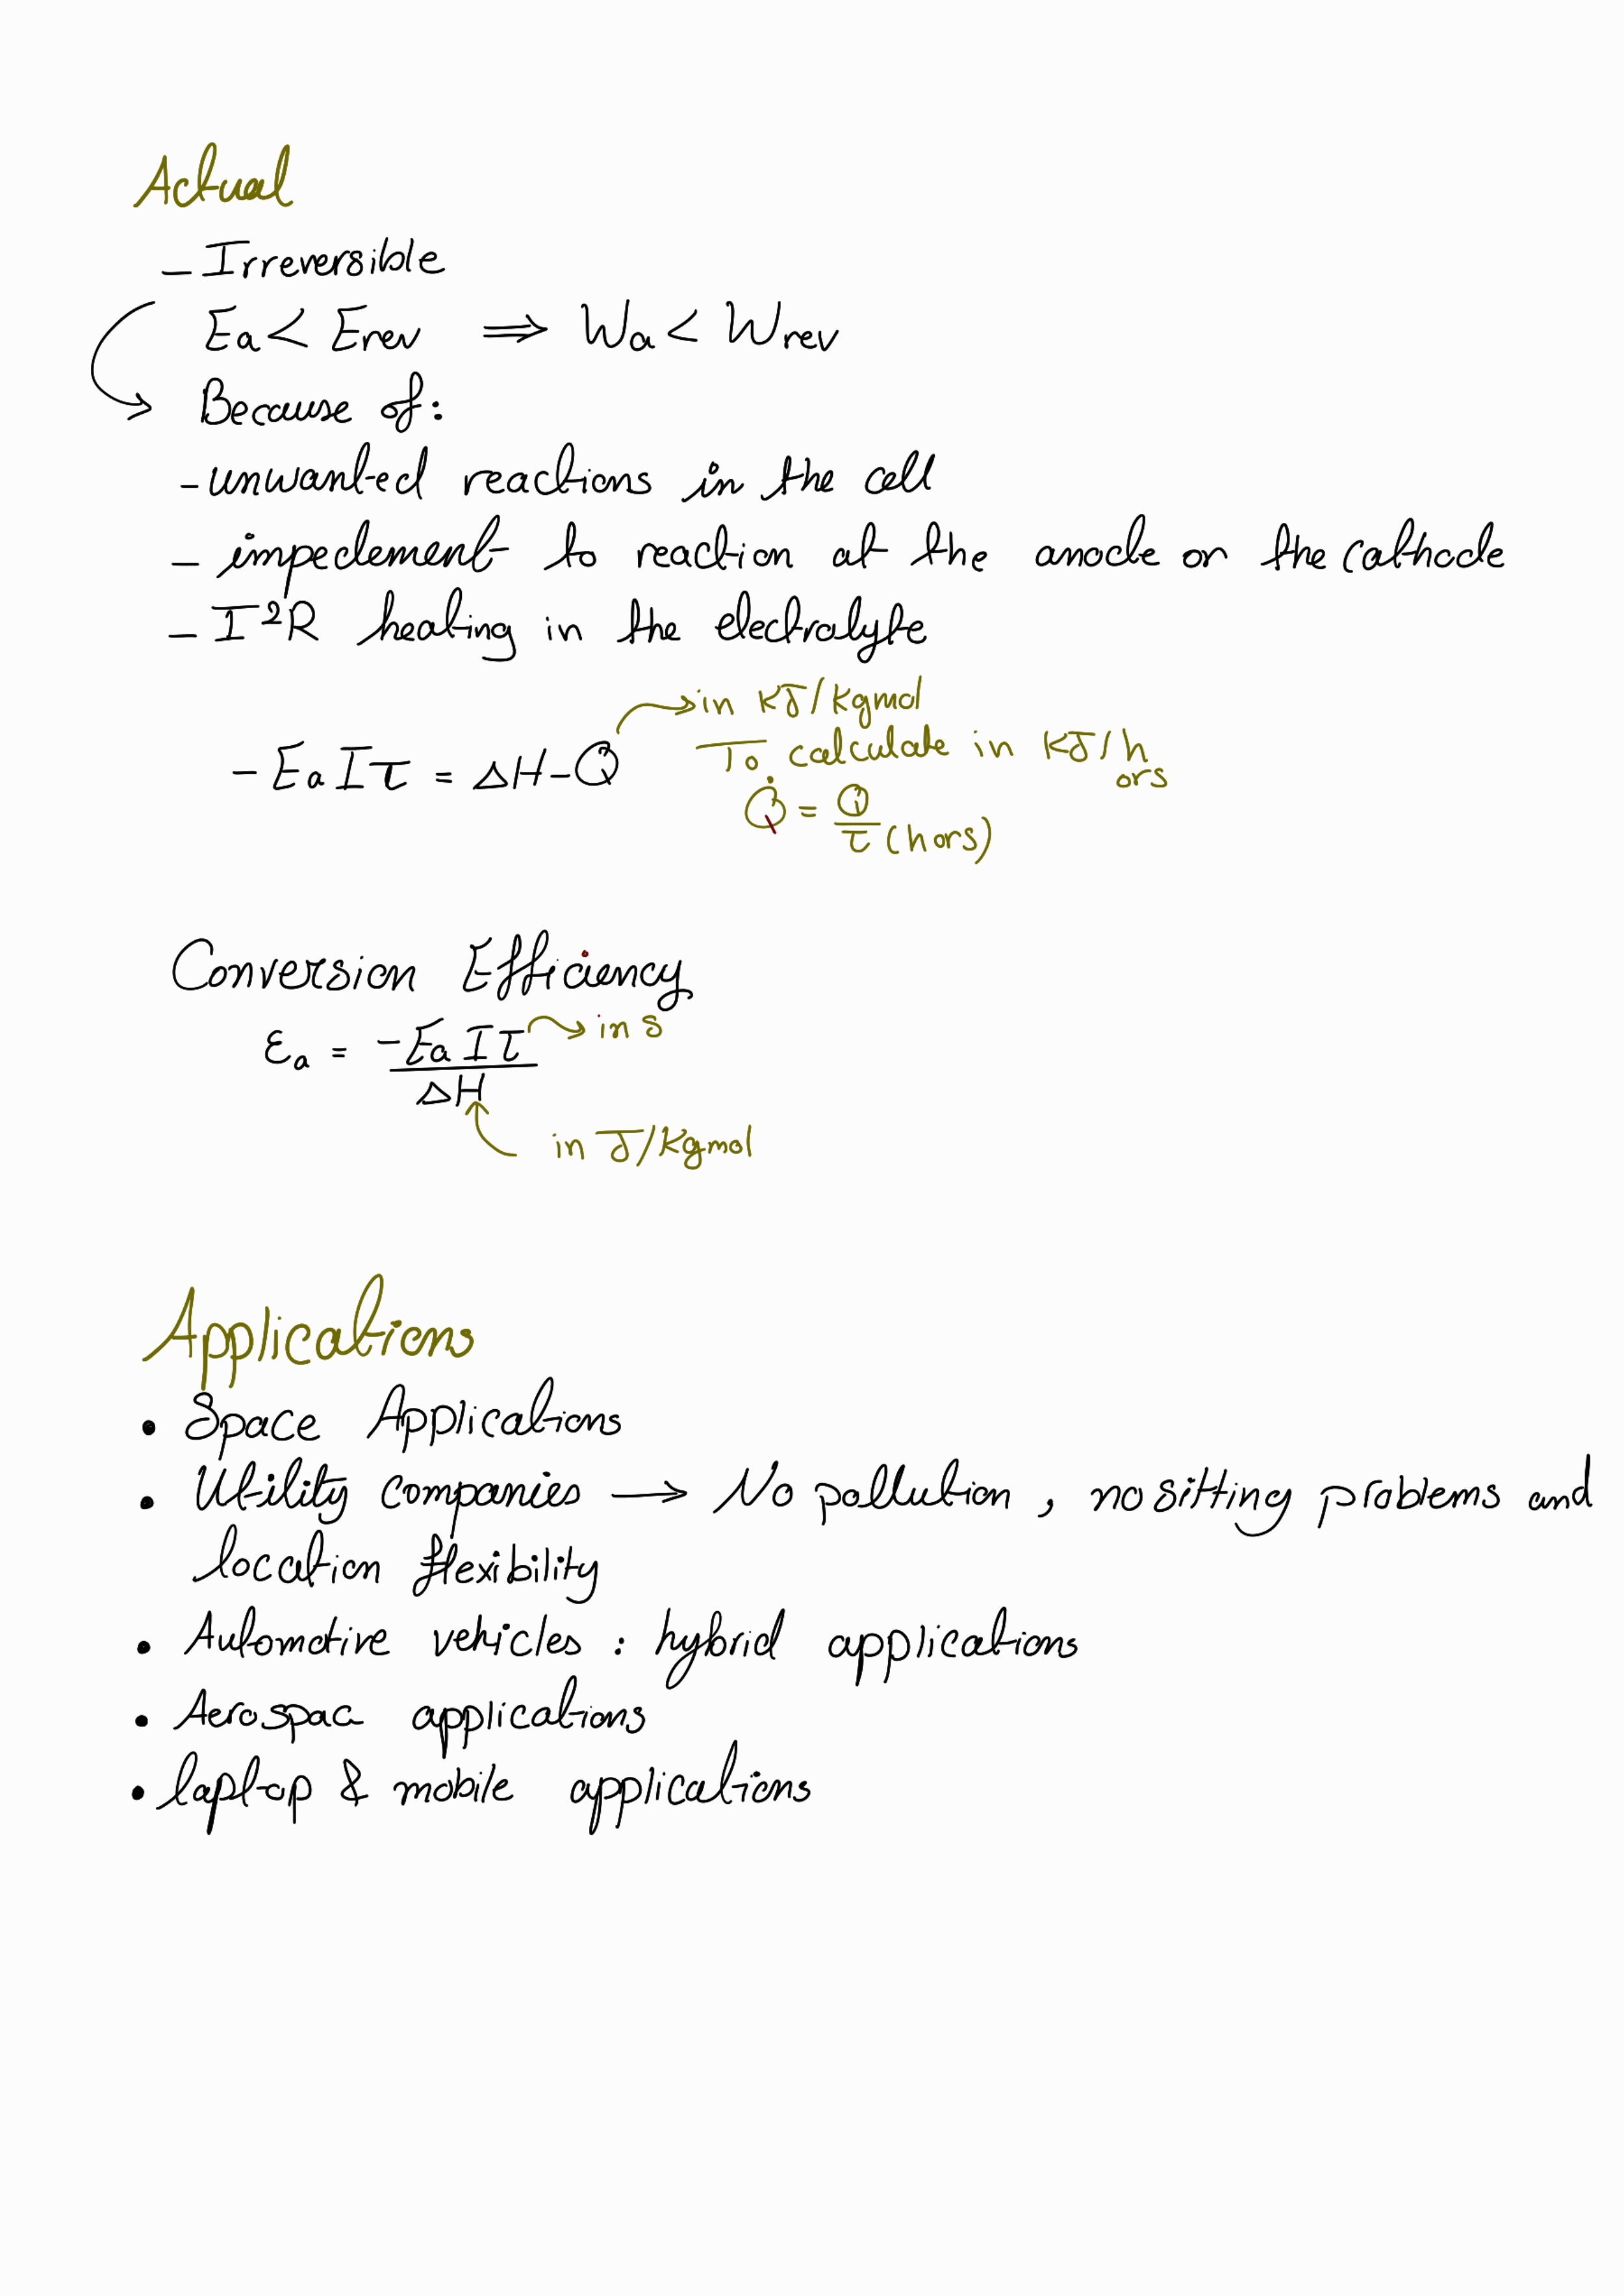 Actual
- Irreversible
Ea < Erev ⇒ Wa < Wrev
Because of:
- unwanted reactions in the cell
- impedement to reaction at the anode or the cathode
- I²R heating in the electrolyte
→ in KJ/Kgmol
- Ea I τ = ΔH - Q
To calculate in KJ/h
ors
Q̇ = Q/τ (hors)
Conversion Efficiency
εa = -Ea I τ / ΔH → in s
in J/Kgmol
Applications
• Space Applications
• Utility companies → No pollution , no sitting problems and
location flexibility
• Automotive vehicles : hybrid applications
• Aerospac applications
• laptop & mobile applications